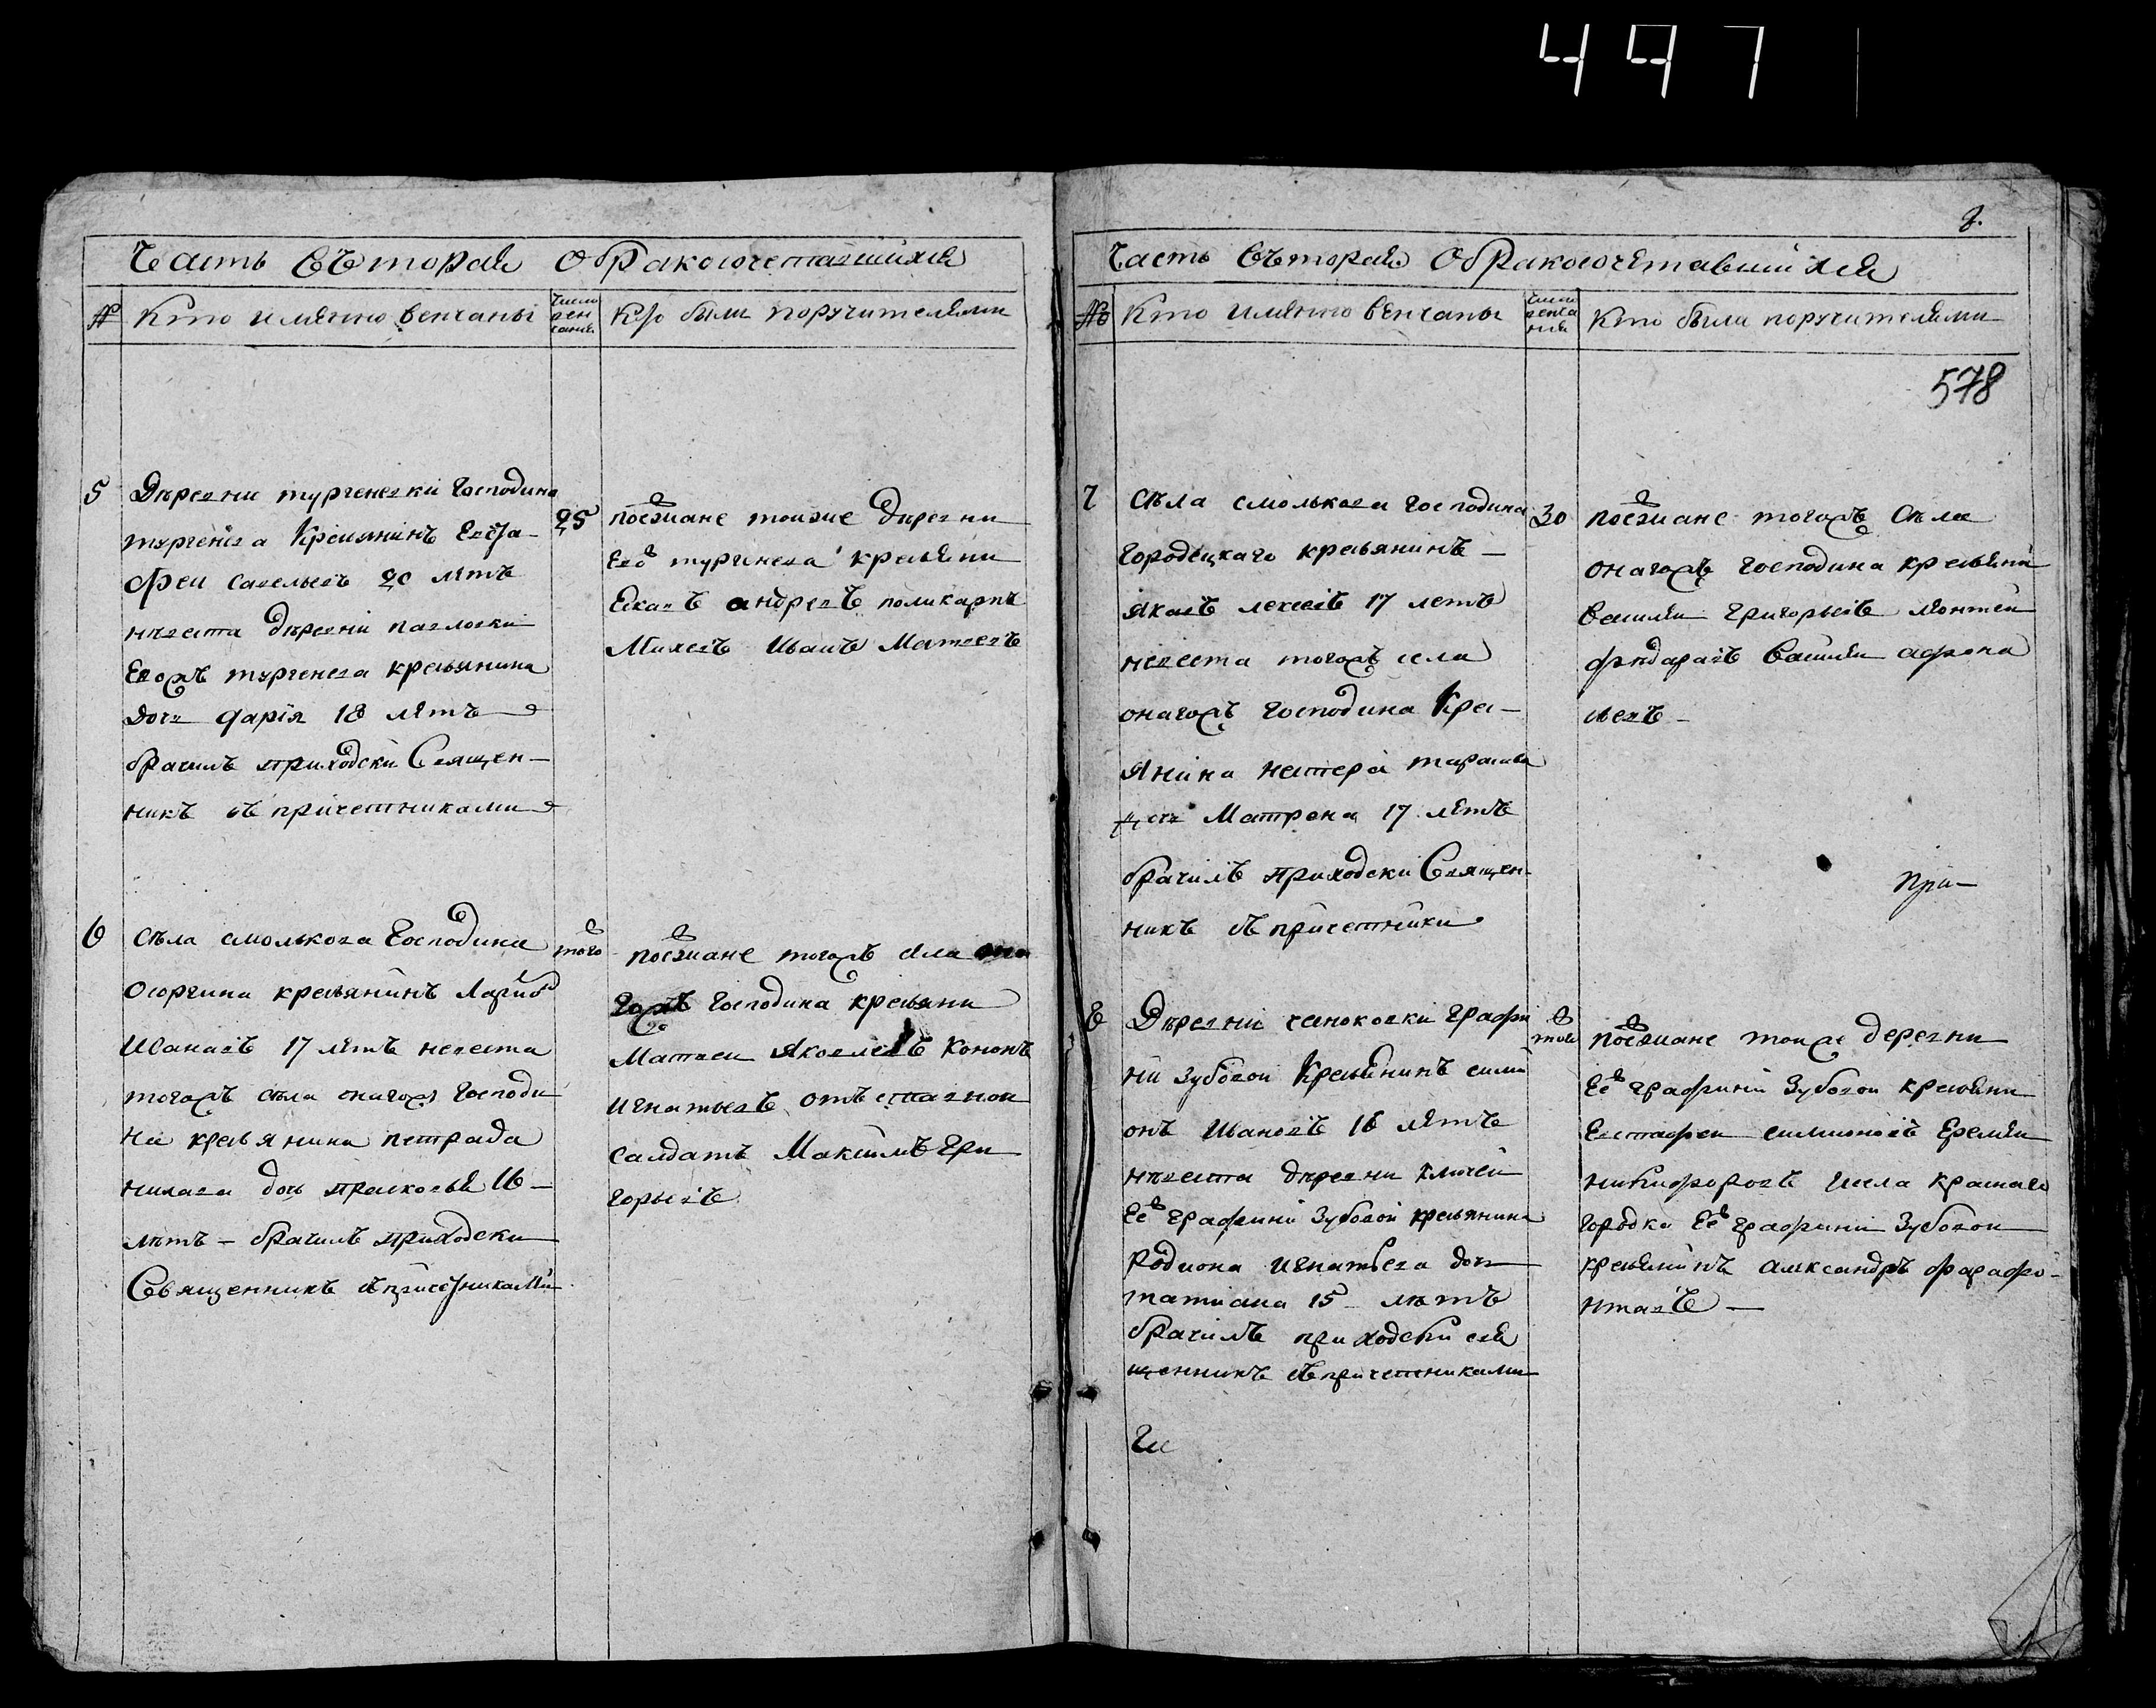 447
Часть вторая о бракосочетавшихся
№ Кто имянно венчаны
число вен чания
Кто были поручителями
5
Деревни тургеневки Господина
тургенева Крестянинъ Евста-
феи савельевъ 20 летъ
невеста деревни павловки
Евожъ тургенева крестьянина
дочь дарiя 18 летъ
брачилъ приходски Священ-
никъ съ причетниками
25
поезжане тоиже деревни
Ево тургенева крестьяни
андреевъ поликарпъ
Михеевъ Иванъ Матвеевъ
6
села смолькова Господина
Осоргина крестьянинъ Ларио
Ивановъ 17 летъ невеста
тогожъ села онагожъ Господи
на крестьянина
дочь прасковья 16 -
летъ - брачилъ приходски
Священникъ съ причетниками
того
поезжане тогожъ села она
гожъ Господина крестьяни
Матвеи Яковлевъ Кононъ
Игнатьевъ отъставнои
салдатъ Максимъ Гри
горьевъ
Часть вторая о бракосочетавшихся
№ Кто имянно венчаны
число венча ния
Кто были поручителями
578
7
Села смолькова господина
Городецкаго крестьянинъ -
Яковъ 17 летъ
невеста тогожъ села
онагожъ господина Крес-
янина нестера тарасова
дочь Матрена 17 летъ
брачилъ приходски Священ-
никъ съ причетники
30
поезжане тогожъ Села
онагожъ господина крестьяни
василеи григорьевъ
василеи афона
сьевъ -
при-
8
Деревни графи
ни Зубовои Крестьянинъ сими
онъ Ивановъ 16 летъ
невеста деревни ключеи
Ее графини Зубовои крестьянина
Родиона Игнатьева дочь
татиана 15 летъ
брачилъ приходски свя
щенникъ съ причетниками
того
поезжане тоиже деревни
Ее графини Зубовои крестьяни
Евстафеи симионовъ Еремеи
никифоровъ исела краснаго
городка Ее графини Зубовои
крестьянинъ александръ фарафо-
нтовъ -